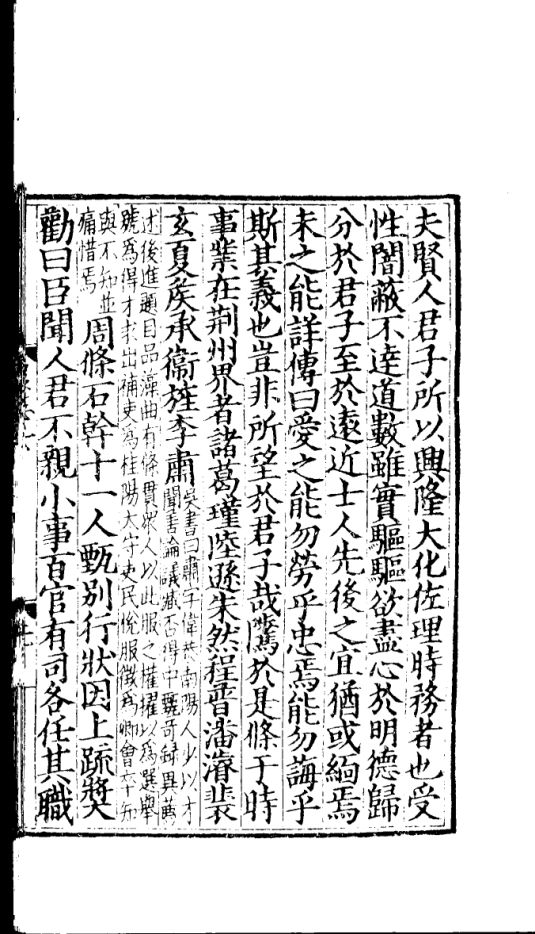 夫賢人君子所以興隆大化佐理時務者也受
性闇蔽不達道數雖實驅驅欲盡心於明德歸
分於君子至於遠近士人先後之宜猶或緬焉
未之能詳傳曰愛之能勿勞乎忠焉能勿誨乎
斯其義也豈非所望於君子哉騭於是條于時
事業在荊州界者諸葛瑾陸遜朱然程普潘濬裴
玄夏侯承衞旌李肅
吳書曰肅字偉恭南陽人少以才
聞善論議臧否得中甄奇録異薦
述後進題目品藻曲有條貫衆人以此服之權擢以爲選舉
號爲得才求出補吏爲桂陽太守吏民悅服徵爲卿會卒知
與不知並
痛惜焉
周條石幹十一人甄別行狀因上疏奬
勸曰臣聞人君不親小事百官有司各任其職